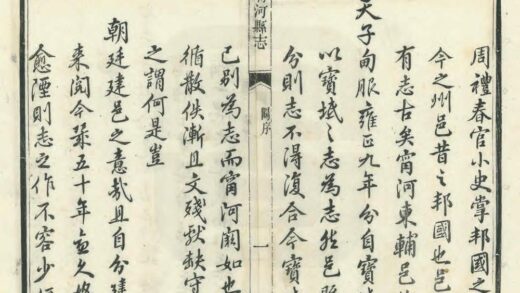 周禮春官小史掌邦國之
今之州邑昔之邦國也邑
有志古矣甯河東輔邑
天子甸服雍正九年分自寶
以寶坻之志為志然邑
分則志不得復合今寶
河縣志
關序
一
已別為志而甯河闕如也
循散佚漸且文殘獻缺守
之謂何是豈
朝廷建邑之意哉且自分建
來閱今幾五十年益久
愈湮則志之作不容少